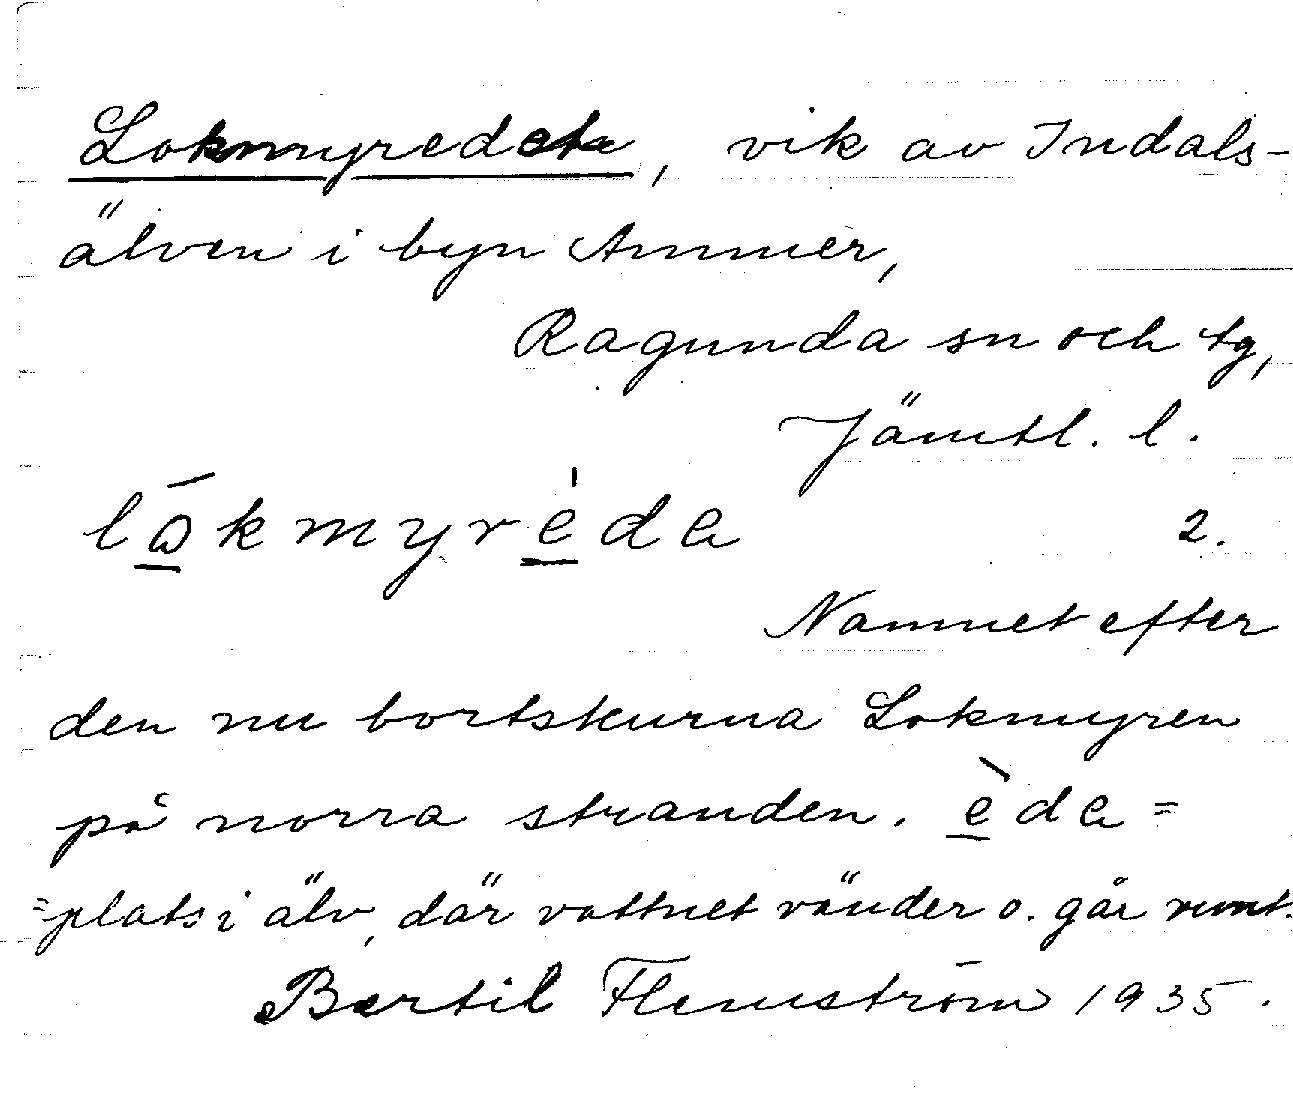 Lokmyredet, vik av Indals-
älven i byn Ammer,
Ragunda sn och tg,
Jämtl. l.
lokmyrèda 2.
Namnet efter
den nu bortskurna Lokmyren
på norra stranden. èda =
=plats i älv, där vattnet vänder o. går runt.
Bertil Flemström 1935.